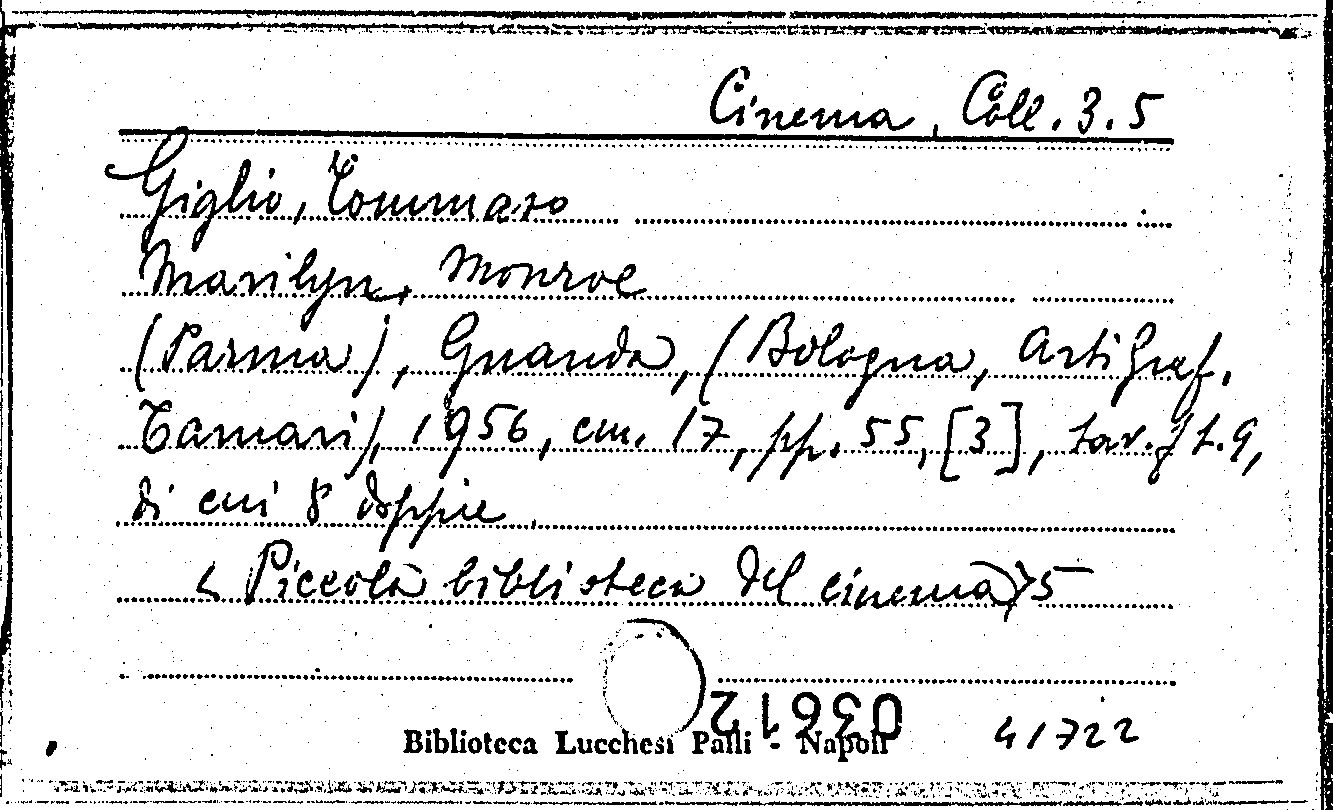 Cinema, Coll. 3.5
Giglio, Tommaso
Marilyn Monroe
(Parma), Guanda, (Bologna, Arti Graf.
Tamari), 1956, cm. 17, pp. 55, [3], tav. f.t. 9,
di cui 8 doppie.
< Piccola biblioteca del cinema > 5
03612
Biblioteca Lucchesi Palli - Napoli
41722